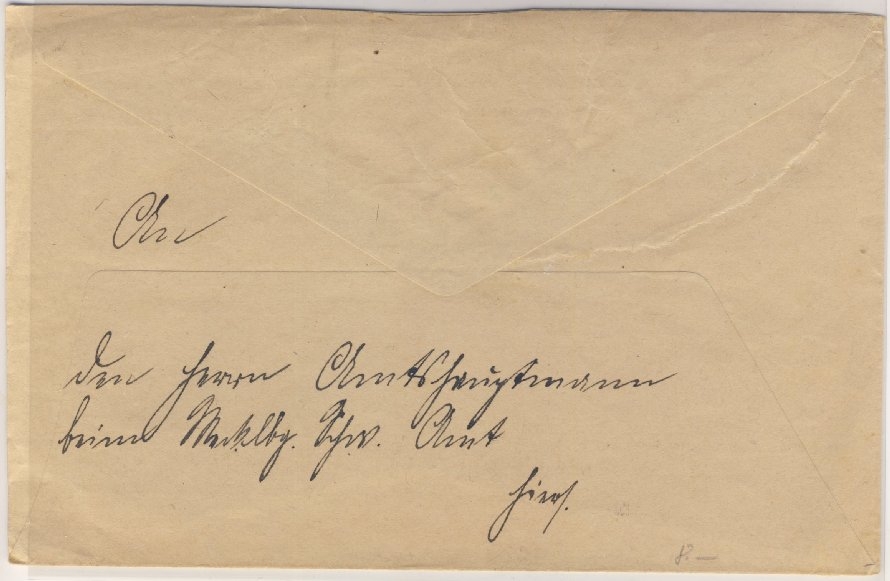 An
den Herrn Amtshauptmann
beim Mecklbg. Schw. Amt
hier.
8.—